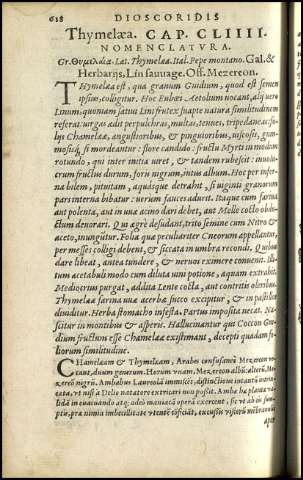 618 DIOSCORIDIS
Thymelæa. CAP. CLIIII.
NOMENCLATVRA.
Gr. Θυμελαία. Lat. Thymelæa. Ital. Pepe montano. Gal. &
Herbarijs, Lin sauuage. Off. Mezereon.
THymelæa est, qua granum Gnidium, quod est semen
ipsius, colligitur. Hoc Enbœi Aetolium nocant, alij vero
Linum: quoniam satus Lini frutex suapte natura similitudinem
referat: virgas ædit perpulchras, multas, tenues, tripedaneas: fo-
lijs Chamelæa, angustioribus, & pinguioribus, viscosis, gum-
mosisq́, si mordeantur: flore candido: fructu Myrti in modum
rotundo, qui inter initia viret, & tandem rubescit: inuolu-
crum fructus durum, foris nigrum, intus album. Hoc per infer-
na bilem, pituitam, aquasque detrahit, si viginti granorum
pars interna bibatur: verum fauces adurit. Itaque cum farina
aut polenta, aut in vua acino dari debet, aut Melle cocto obli-
ctum deuorari. Qui ægre desudant, trito semine cum Nitro &
aceto, inunguntur. Folia quæ peculiariter Cneoron appellantur,
per messes colligi debent, & siccata in umbra recondi. Quibus
dare libeat, antea tundere, & neruos eximere conuenit. Illo-
tum acetabuli modo cum diluta uini potione, aquam extrahit.
Mediocriter purgat, addita Lente cocta, aut contritis oleribus.
Thymelæa farina uuæ acerbæ succo excipitur, & in pastillos
diuiditur. Herba stomacho infesta. Partus imposita necat. Na-
scitur in montibus & asperis. Hallucinantur qui Coccon Gni-
dium fructum esse Chameleæ existimant, decepti quadam fo-
liorum similitudine.
CHamelæam & Thymelæam, Arabes confusanea Mezereon vo-
cant, duum generum. Horum vnum, Mezereon album: alterū, Me-
zereon nigrū. Ambabus Laureola
&
lidā in euacuando